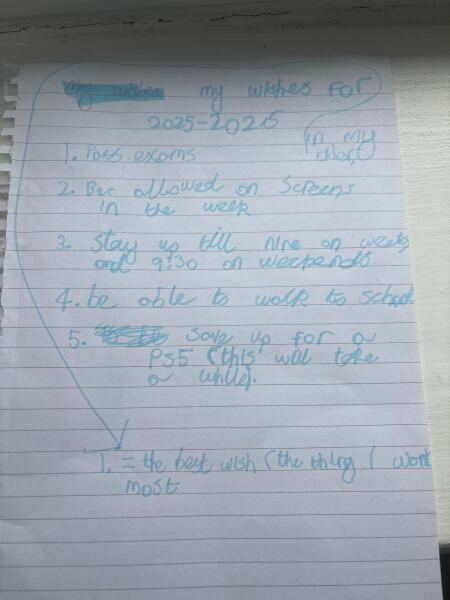 My wishes my wishes FOR
2025-2026
in my
1. Pass exams
2. Bee allowed on screens
in the week
3. Stay up till nine on weeks
and 9:30 on weekends
4. be able to walk to school
5. Save up for a
PS5 (this will take
a while).
1. = the best wish (the thing I want
most